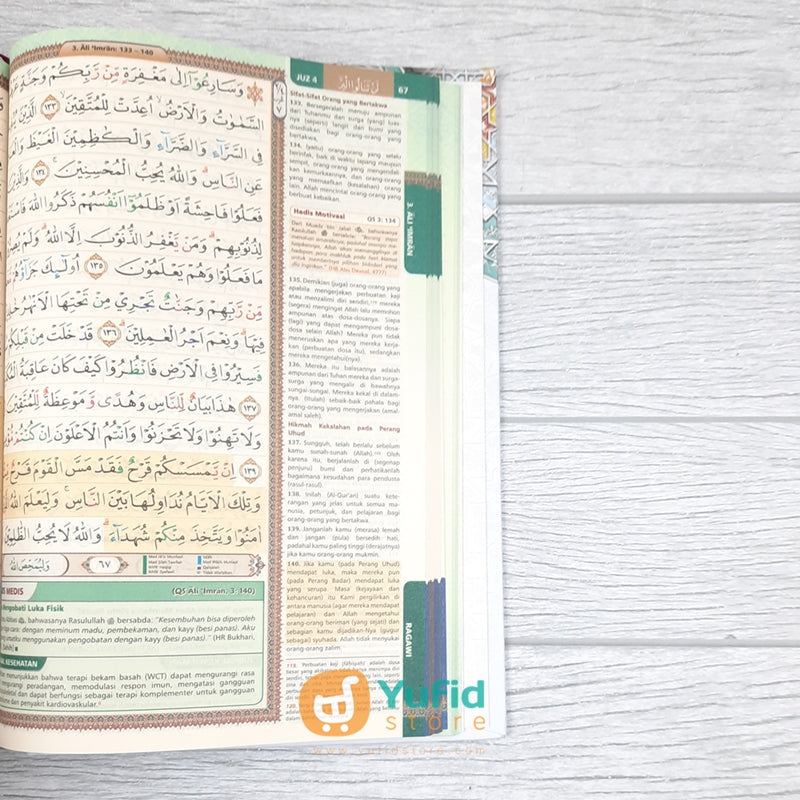 3, Āli ‘Imrān: 133 – 140
وَسَارِعُوٓا۟ إِلَىٰ مَغْفِرَةٍ مِّن رَّبِّكُمْ وَجَنَّةٍ
ٱلسَّمَٰوَٰتُ وَٱلْأَرْضُ أُعِدَّتْ لِلْمُتَّقِينَ ١٣٣ ٱلَّذِينَ
فِى ٱلسَّرَّآءِ وَٱلضَّرَّآءِ وَٱلْكَٰظِمِينَ ٱلْغَيْظَ
عَنِ ٱلنَّاسِ وَٱللَّهُ يُحِبُّ ٱلْمُحْسِنِينَ ١٣٤ وَٱلَّذِينَ
فَعَلُوا۟ فَٰحِشَةً أَوْ ظَلَمُوٓا۟ أَنفُسَهُمْ ذَكَرُوا۟ ٱللَّهَ
لِذُنُوبِهِمْ وَمَن يَغْفِرُ ٱلذُّنُوبَ إِلَّا ٱللَّهُ وَلَمْ
مَا فَعَلُوا۟ وَهُمْ يَعْلَمُونَ ١٣٥ أُو۟لَٰٓئِكَ جَزَآؤُهُم
مِّن رَّبِّهِمْ وَجَنَّٰتٌ تَجْرِى مِن تَحْتِهَا ٱلْأَنْهَٰرُ
فِيهَا وَنِعْمَ أَجْرُ ٱلْعَٰمِلِينَ ١٣٦ قَدْ خَلَتْ مِن قَبْلِكُمْ
فَسِيرُوا۟ فِى ٱلْأَرْضِ فَٱنظُرُوا۟ كَيْفَ كَانَ عَٰقِبَةُ
١٣٧ هَٰذَا بَيَانٌ لِّلنَّاسِ وَهُدًى وَمَوْعِظَةٌ لِّلْمُتَّقِينَ
وَلَا تَهِنُوا۟ وَلَا تَحْزَنُوا۟ وَأَنتُمُ ٱلْأَعْلَوْنَ إِن كُنتُم
١٣٩ إِن يَمْسَسْكُمْ قَرْحٌ فَقَدْ مَسَّ ٱلْقَوْمَ قَرْحٌ
وَتِلْكَ ٱلْأَيَّامُ نُدَاوِلُهَا بَيْنَ ٱلنَّاسِ وَلِيَعْلَمَ ٱللَّهُ
ءَامَنُوا۟ وَيَتَّخِذَ مِنكُمْ شُهَدَآءَ وَٱللَّهُ لَا يُحِبُّ ٱلظَّٰلِمِينَ
وَلِيُمَحِّصَ ٱللَّهُ
٦٧
MEDIS (QS Āli ‘Imrān, 3: 140)
Mengobati Luka Fisik
bahwasanya Rasulullah bersabda: "Kesembuhan bisa diperoleh
cara: dengan meminum madu, pembekaman, dan kayy (besi panas). Aku
umatku menggunakan pengobatan dengan kayy (besi panas)." (HR Bukhari,
KESEHATAN
menunjukkan bahwa terapi bekam basah (WCT) dapat mengurangi rasa
mengurangi peradangan, memodulasi respon imun, mengatasi gangguan
dan dapat berfungsi sebagai terapi komplementer untuk gangguan
dan penyakit kardiovaskular.
JUZ 4
67
Sifat-Sifat Orang yang Bertakwa
133. Bersegeralah menuju ampunan
dari Tuhanmu dan surga (yang) luas-
nya (seperti) langit dan bumi yang
disediakan bagi orang-orang yang
bertakwa,
134. (yaitu) orang-orang yang selalu
berinfak, baik di waktu lapang maupun
sempit, orang-orang yang mengendali-
kan kemurkaannya, dan orang-orang
yang memaafkan (kesalahan) orang
lain. Allah mencintai orang-orang yang
berbuat kebaikan.
Hadis Motivasi QS 3: 134
Dari Muadz bin Jabal, bahwasanya
Rasulullah bersabda:
(HR Abu Dawud, 4777)
135. Demikian (juga) orang-orang yang
apabila mengerjakan perbuatan keji
atau menzalimi diri sendiri, mereka
(segera) mengingat Allah lalu memohon
ampunan atas dosa-dosanya. Siapa
(lagi) yang dapat mengampuni dosa-
dosa selain Allah? Mereka pun tidak
meneruskan apa yang mereka kerja-
kan (perbuatan dosa itu), sedangkan
mereka mengetahui(nya).
136. Mereka itu balasannya adalah
ampunan dari Tuhan mereka dan surga-
surga yang mengalir di bawahnya
sungai-sungai. Mereka kekal di dalam-
nya. (Itulah) sebaik-baik pahala bagi
orang-orang yang mengerjakan (amal-
amal saleh).
Hikmah Kekalahan pada Perang
Uhud
137. Sungguh, telah berlalu sebelum
kamu sunah-sunah (Allah). Oleh
karena itu, berjalanlah di (segenap
penjuru) bumi dan perhatikanlah
bagaimana kesudahan para pendusta
(rasul-rasul).
138. Inilah (Al-Qur'an) suatu kete-
rangan yang jelas untuk semua ma-
nusia, petunjuk, dan pelajaran bagi
orang-orang yang bertakwa.
139. Janganlah kamu (merasa) lemah
dan jangan (pula) bersedih hati,
padahal kamu paling tinggi (derajatnya)
jika kamu orang-orang mukmin.
140. Jika kamu (pada Perang Uhud)
mendapat luka, maka mereka pun
(pada Perang Badar) mendapat luka
yang serupa. Masa (kejayaan dan
kehancuran) itu Kami pergilirkan di
antara manusia (agar mereka mendapat
pelajaran) dan Allah mengetahui
orang-orang beriman (yang sejati) dan
sebagian kamu dijadikan-Nya (gugur
sebagai) syuhada. Allah tidak menyukai
orang-orang zalim.
3. ĀLI ‘IMRĀN
RAGAWI
Yufid
store
www.yufidstore.com